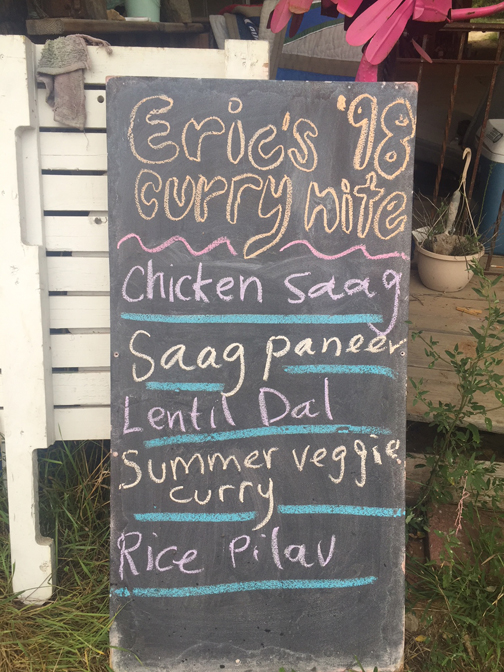 Eric's '98
curry nite
Chicken Saag
Saag paneer
Lentil Dal
Summer veggie
curry
Rice Pilav